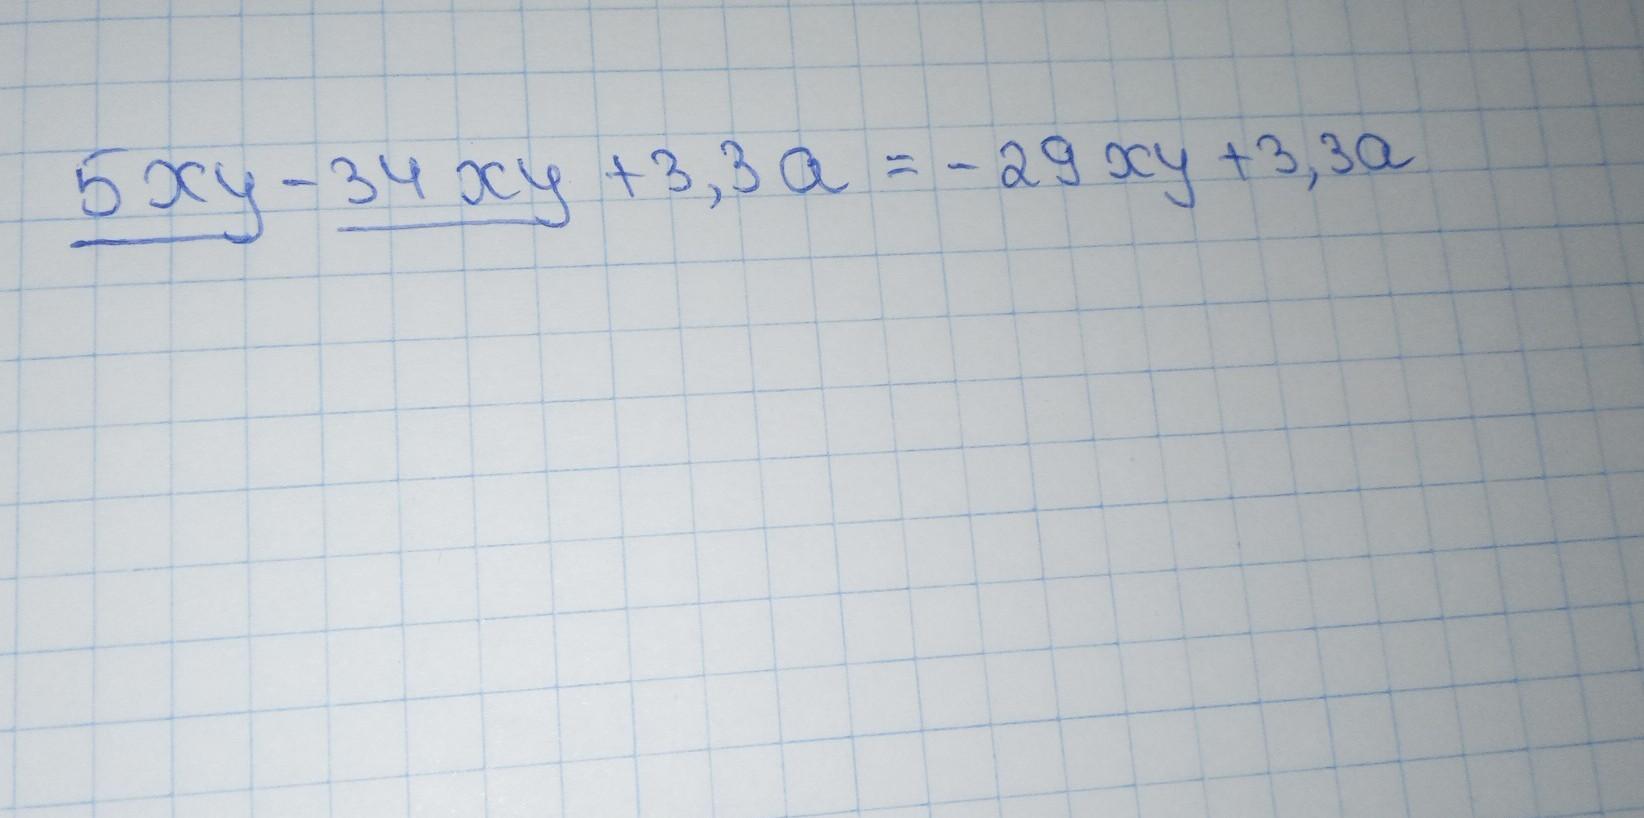 5xy - 34xy + 3,3a = - 29xy + 3,3a